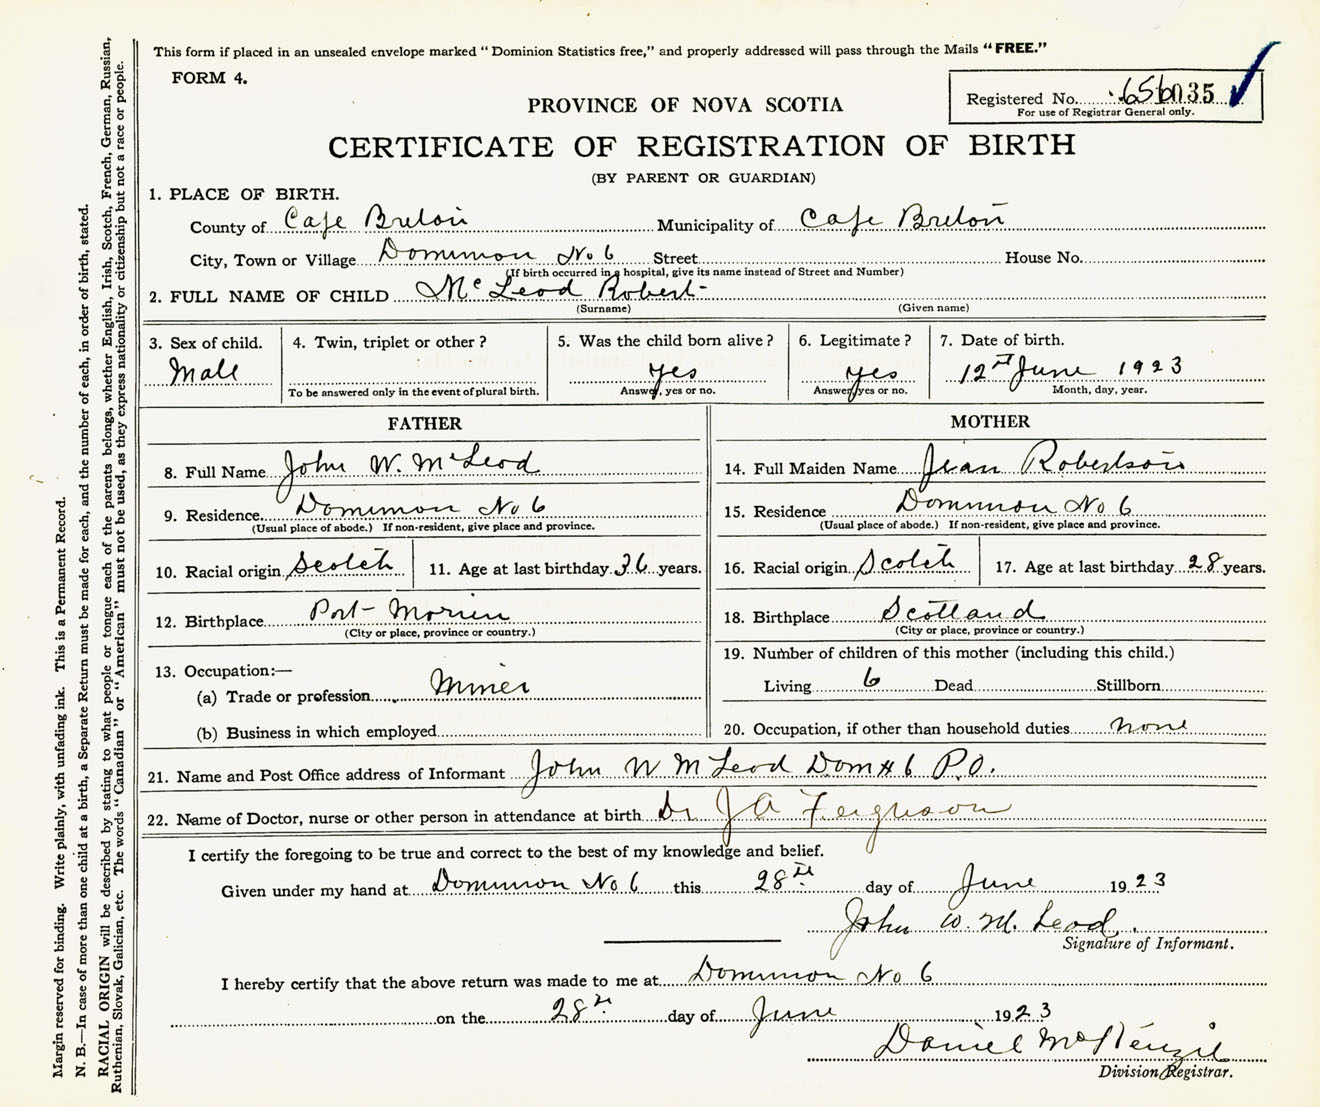 This form if placed in an unsealed envelope marked "Dominion Statistics free," and properly addressed will pass through the Mails "FREE."
FORM 4.
Registered No. 656035
For use of Registrar General only.
PROVINCE OF NOVA SCOTIA
CERTIFICATE OF REGISTRATION OF BIRTH
(BY PARENT OR GUARDIAN)
1. PLACE OF BIRTH.
County of Cape Breton Municipality of Cape Breton
City, Town or Village Dominion No 6 Street House No.
(If birth occurred in a hospital, give its name instead of Street and Number)
2. FULL NAME OF CHILD McLeod Robert
(Surname) (Given name)
3. Sex of child. 4. Twin, triplet or other? 5. Was the child born alive? 6. Legitimate? 7. Date of birth.
Male yes yes 12th June 1923
To be answered only in the event of plural birth. Answer, yes or no. Answer, yes or no. Month, day, year.
FATHER MOTHER
8. Full Name John W. McLeod 14. Full Maiden Name Jean Robertson
9. Residence. Dominion No 6 15. Residence Dominion No 6
(Usual place of abode.) If non-resident, give place and province. (Usual place of abode.) If non-resident, give place and province.
10. Racial origin Scotch 11. Age at last birthday 36 years. 16. Racial origin Scotch 17. Age at last birthday 28 years.
12. Birthplace Port Morien 18. Birthplace Scotland
(City or place, province or country.) (City or place, province or country.)
13. Occupation:— 19. Number of children of this mother (including this child.)
(a) Trade or profession Miner Living 6 Dead Stillborn
(b) Business in which employed 20. Occupation, if other than household duties none
21. Name and Post Office address of Informant John W McLeod Dom # 6 P.O.
22. Name of Doctor, nurse or other person in attendance at birth Dr J A Ferguson
I certify the foregoing to be true and correct to the best of my knowledge and belief.
Given under my hand at Dominion No 6 this 28th day of June 1923
John W. McLeod.
Signature of Informant.
I hereby certify that the above return was made to me at Dominion No 6
on the 28th day of June 1923
Daniel McKenzie
Division Registrar.
Margin reserved for binding. Write plainly, with unfading ink. This is a Permanent Record.
N. B.—In case of more than one child at a birth, a Separate Return must be made for each, and the number of each, in order of birth, stated.
RACIAL ORIGIN will be described by stating to what people or tongue each of the parents belongs, whether English, Irish, Scotch, French, German, Russian,
Ruthenian, Slovak, Galician, etc. The words "Canadian" or "American" must not be used, as they express nationality or citizenship but not a race or people.